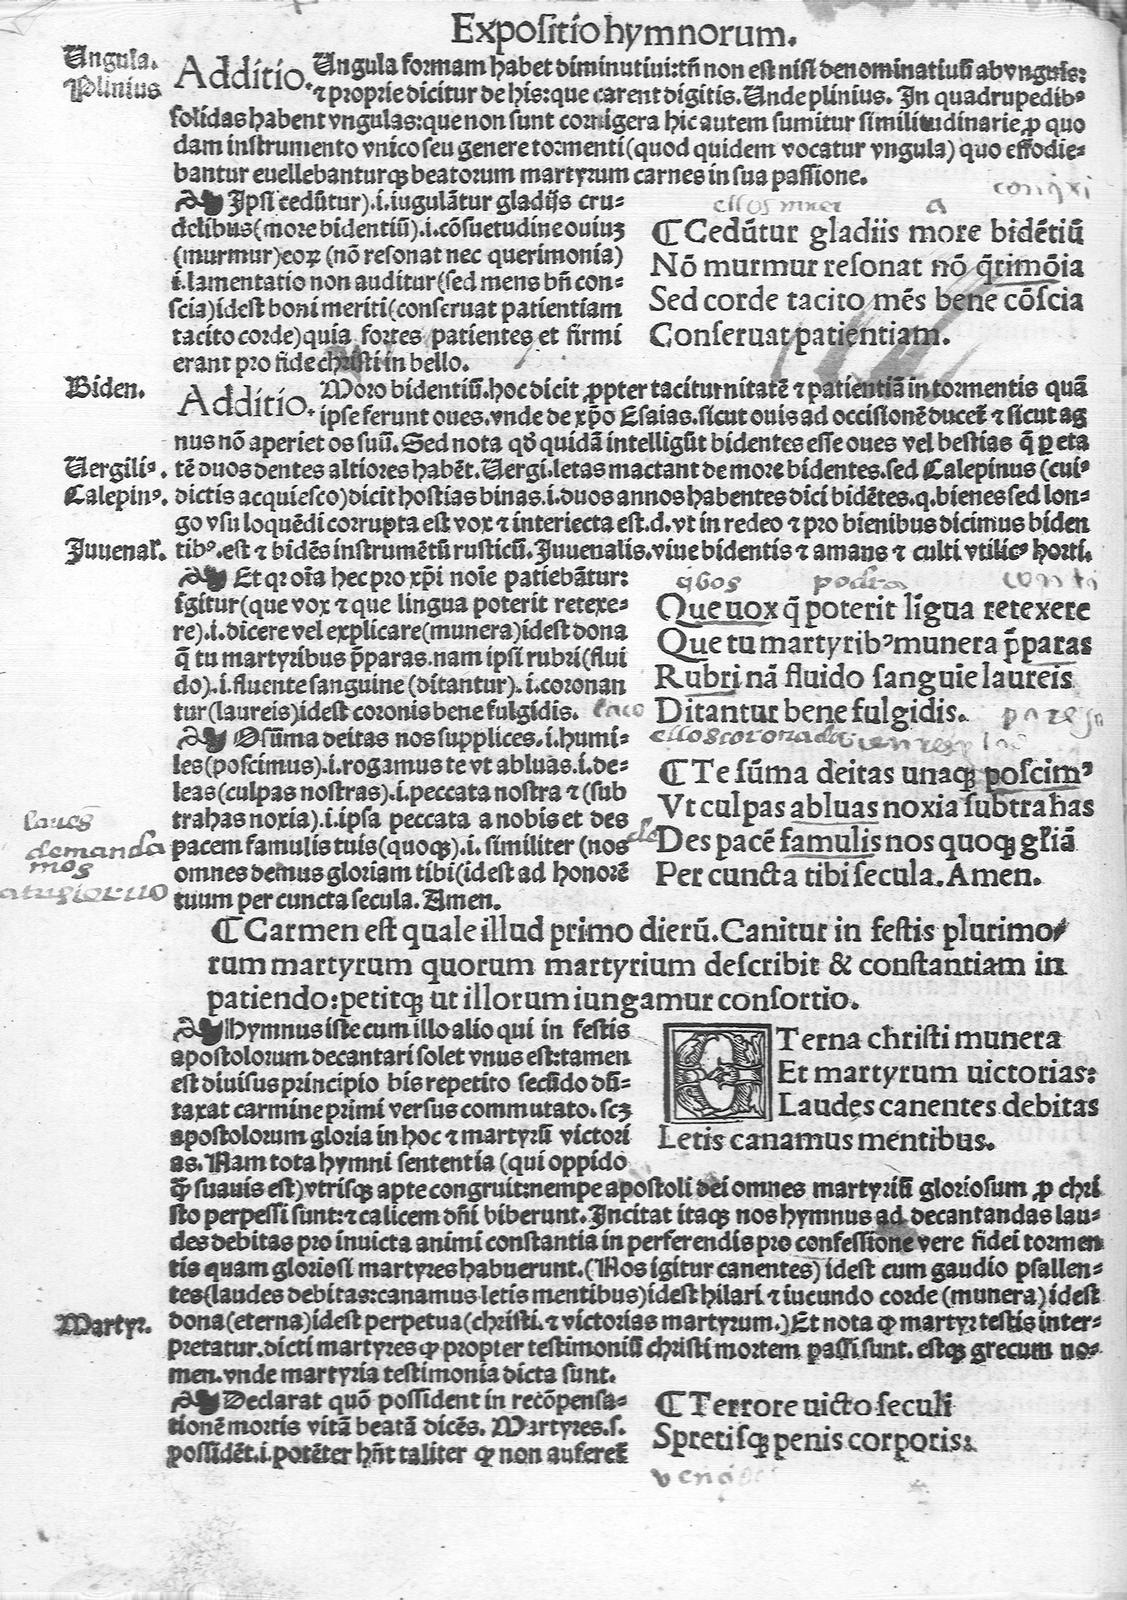 Expositio hymnorum.
Ungula.
Plinius
Additio. Ungula formam habet diminutiui:tñ non est nisi denominatiuũ ab vnguis:
⁊ proprie dicitur de his:que carent digitis. Unde plinius. In quadrupedibꝰ
solidas habent vngulas:que non sunt cornigera hic autem sumitur similitudinarie ꝓ quo
dam instrumento vnico seu genere tormenti(quod quidem vocatur vngula) quo effodie⸗
bantur euellebanturqꝫ beatorum martyrum carnes in sua passione.
Ipsi cedũtur).i.iugulãtur gladijs cru⸗
delibus(more bidentiũ).i.cõsuetudine ouiuꝫ
(murmur)eoꝝ (nõ resonat nec querimonia)
i.lamentatio non auditur(sed mens bñ con⸗
scia)idest boni meriti(conseruat patientiam
tacito corde)quia fortes patientes et firmi
erant pro fide christi in bello.
ellos muer a
¶ Cedũtur gladiis more bidẽtiũ
Nõ murmur resonat nõ q̃rimõia
Sed corde tacito mẽs bene cõscia
Conseruat patientiam.
Biden.
Additio. Moro bidentiũ.hoc dicit ꝓpter taciturnitatẽ ⁊ patientiã in tormentis quã
ipse ferunt oues.vnde de xp̃o Esaias.sicut ouis ad occisionẽ ducet̃ ⁊ sicut ag
nus nõ aperiet os suũ. Sed nota qđ quidã intelligũt bidentes esse oues vel bestias q̃ ꝑ eta
Uergiliꝰ.
tẽ duos dentes altiores habẽt. Uergi.letas mactant de more bidentes.sed Calepinus (cuiꝰ
Calepinꝰ.
dictis acquiesco)dicit hostias binas.i.duos annos habentes dici bidẽtes.q.bienes sed lon⸗
go vsu loquẽdi corrupta est vox ⁊ interiecta est.d.vt in redeo ⁊ pro bienibus dicimus biden
Juuenal.
tibꝰ.est ⁊ bidẽs instrumẽtũ rusticũ. Juuenalis.viue bidentis ⁊ amans ⁊ culti vtilicꝰ horti.
Et qꝛ oĩa hec pro xp̃i noĩe patiebãtur:
igitur(que vox ⁊ que lingua poterit retexe⸗
re).i.dicere vel explicare(munera)idest dona
q̃ tu martyribus p̃paras.nam ipsi rubri(flui
do).i.fluente sanguine (ditantur).i.coronan
tur(laureis)idest coronis bene fulgidis.
podra
Que uox q̃ poterit lĩgua retexere
Que tu martyribꝰ munera p̃paras
Rubri nã fluido sanguĩe laureis
Ditantur bene fulgidis.
O sũma deitas nos supplices.i.humi⸗
les(poscimus).i.rogamus te vt abluas.i.de⸗
leas(culpas nostras).i.peccata nostra ⁊ (sub
trahas noxia).i.ipsa peccata a nobis et des
pacem famulis tuis(quoqꝫ).i.similiter (nos
omnes demus gloriam tibi(idest ad honorẽ
tuum per cuncta secula. Amen.
demanda
mos
¶ Te sũma deitas unaqꝫ poscimꝰ
Vt culpas abluas noxia subtrahas
Des pacẽ famulis nos quoqꝫ gl̃iã
Per cuncta tibi secula. Amen.
¶ Carmen est quale illud primo dierũ. Canitur in festis plurimo
rum martyrum quorum martyrium describit & constantiam in
patiendo:petitqꝫ ut illorum iungamur consortio.
Hymnus iste cum illo alio qui in festis
apostolorum decantari solet vnus est:tamen
est diuisus principio bis repetito secũdo dũ⸗
taxat carmine primi versus commutato.scꝫ
apostolorum gloria in hoc ⁊ martyrũ victori
as. Nam tota hymni sententia (qui oppido
ETerna christi munera
Et martyrum uictorias:
Laudes canentes debitas
Letis canamus mentibus.
ꝙ̃ suauis est)vtrisqꝫ apte congruit:nempe apostoli dei omnes martyriũ gloriosum ꝓ chri
sto perpessi sunt:⁊ calicem dñi biberunt. Incitat itaqꝫ nos hymnus ad decantandas lau⸗
des debitas pro inuicta animi constantia in perferendis pro confessione vere fidei tormen
tis quam gloriosi martyres habuerunt.(Nos igitur canentes) idest cum gaudio psallen⸗
tes(laudes debitas:canamus letis mentibus)idest hilari ⁊ iucundo corde (munera)idest
Martyr.
dona(eterna)idest perpetua(christi.⁊ victorias martyrum.) Et nota ꝙ martyr testis inter⸗
pretatur.dicti martyres ꝙ propter testimoniũ christi mortem passi sunt.estqꝫ grecum no⸗
men.vnde martyria testimonia dicta sunt.
Declarat quõ possident in recõpensa⸗
tionẽ mortis vitã beatã dicẽs. Martyres.s.
possidẽt.i.potẽter hñt taliter ꝙ non auferet̃
¶ Terrore uicto seculi
Spretisqꝫ penis corporis: